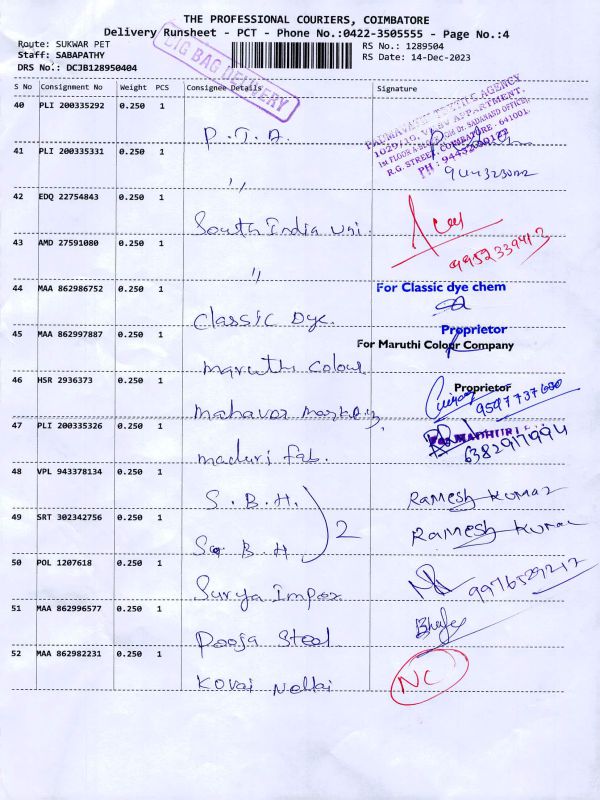 THE PROFESSIONAL COURIERS, COIMBATORE
Delivery Runsheet - PCT - Phone No.:0422-3505555 - Page No.:4
Route: SUKWAR PET
RS No.: 1289504
Staff: SABAPATHY
RS Date: 14-Dec-2023
DRS No.: DCJB128950404
BIG BAG DELIVERY
S No Consignment No Weight PCS Consignee Details Signature
40 PLI 200335292 0.250 1 P.T.A.
PADMAVATHI TEXTILE AGENCY
APPARTMENT.
1st FLOOR
R.G. STREET, COIMBATORE - 641001.
41 PLI 200335331 0.250 1 "
42 EDQ 22754843 0.250 1 South India uni.
43 AMD 27591080 0.250 1 " 9952339413
44 MAA 862986752 0.250 1 Classic Dye. For Classic dye chem
Proprietor
45 MAA 862997887 0.250 1 maruthi colour For Maruthi Colour Company
Proprietor
46 HSR 2936373 0.250 1 mahavar 9597737680
47 PLI 200335326 0.250 1 maduri fab. MADHURI 6382917994
48 VPL 943378134 0.250 1 S.B.H. Ramesh Kumar
2
49 SRT 302342756 0.250 1 S.B.H. Ramesh Kumar
50 POL 1207618 0.250 1 Surya Impex 9976529212
51 MAA 862996577 0.250 1 Pooja Steel
52 MAA 862982231 0.250 1 Kovai Nellai NC